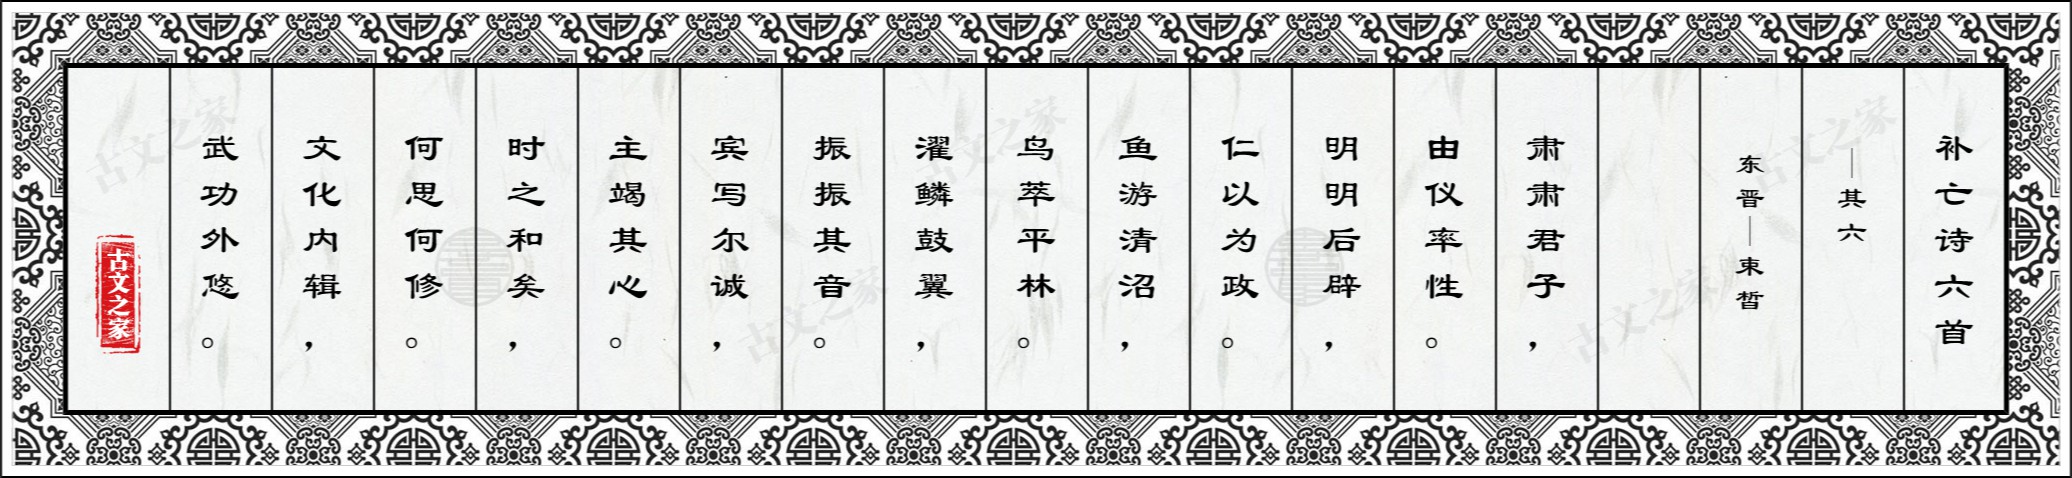 补亡诗六首
—其六
东晋—束皙
肃肃君子，
由仪率性。
明明后辟，
仁以为政。
鱼游清沼，
鸟萃平林。
濯鳞鼓翼，
振振其音。
宾写尔诚，
主竭其心。
时之和矣，
何思何修。
文化内辑，
武功外悠。
古文之家